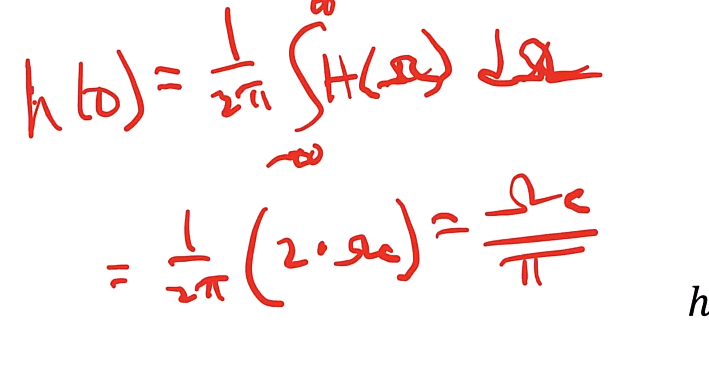 h(0) = 1/2π ∫_{-∞}^{∞} H(Ω) dΩ
= 1/2π (2·Ωc) = Ωc/π
h